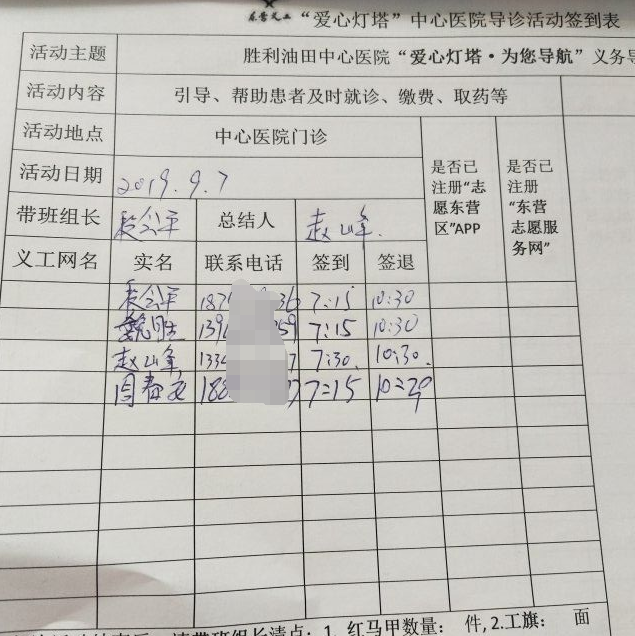 东营义工 “爱心灯塔”中心医院导诊活动签到表
活动主题 胜利油田中心医院“爱心灯塔·为您导航”义务导
活动内容 引导、帮助患者及时就诊、缴费、取药等
活动地点 中心医院门诊
活动日期 2019.9.7
是否已注册“志愿东营区”APP
是否已注册“东营志愿服务网”
带班组长 公平 总结人 赵山峰.
义工网名 实名 联系电话 签到 签退
公平 187 36 7:15 10:30
魏胜 139 59 7:15 10:30
赵山峰 133 7 7:30. 10:30.
周春 188 7 7:15 10:30
请带班组长清点：1. 红马甲数量： 件, 2.工旗： 面